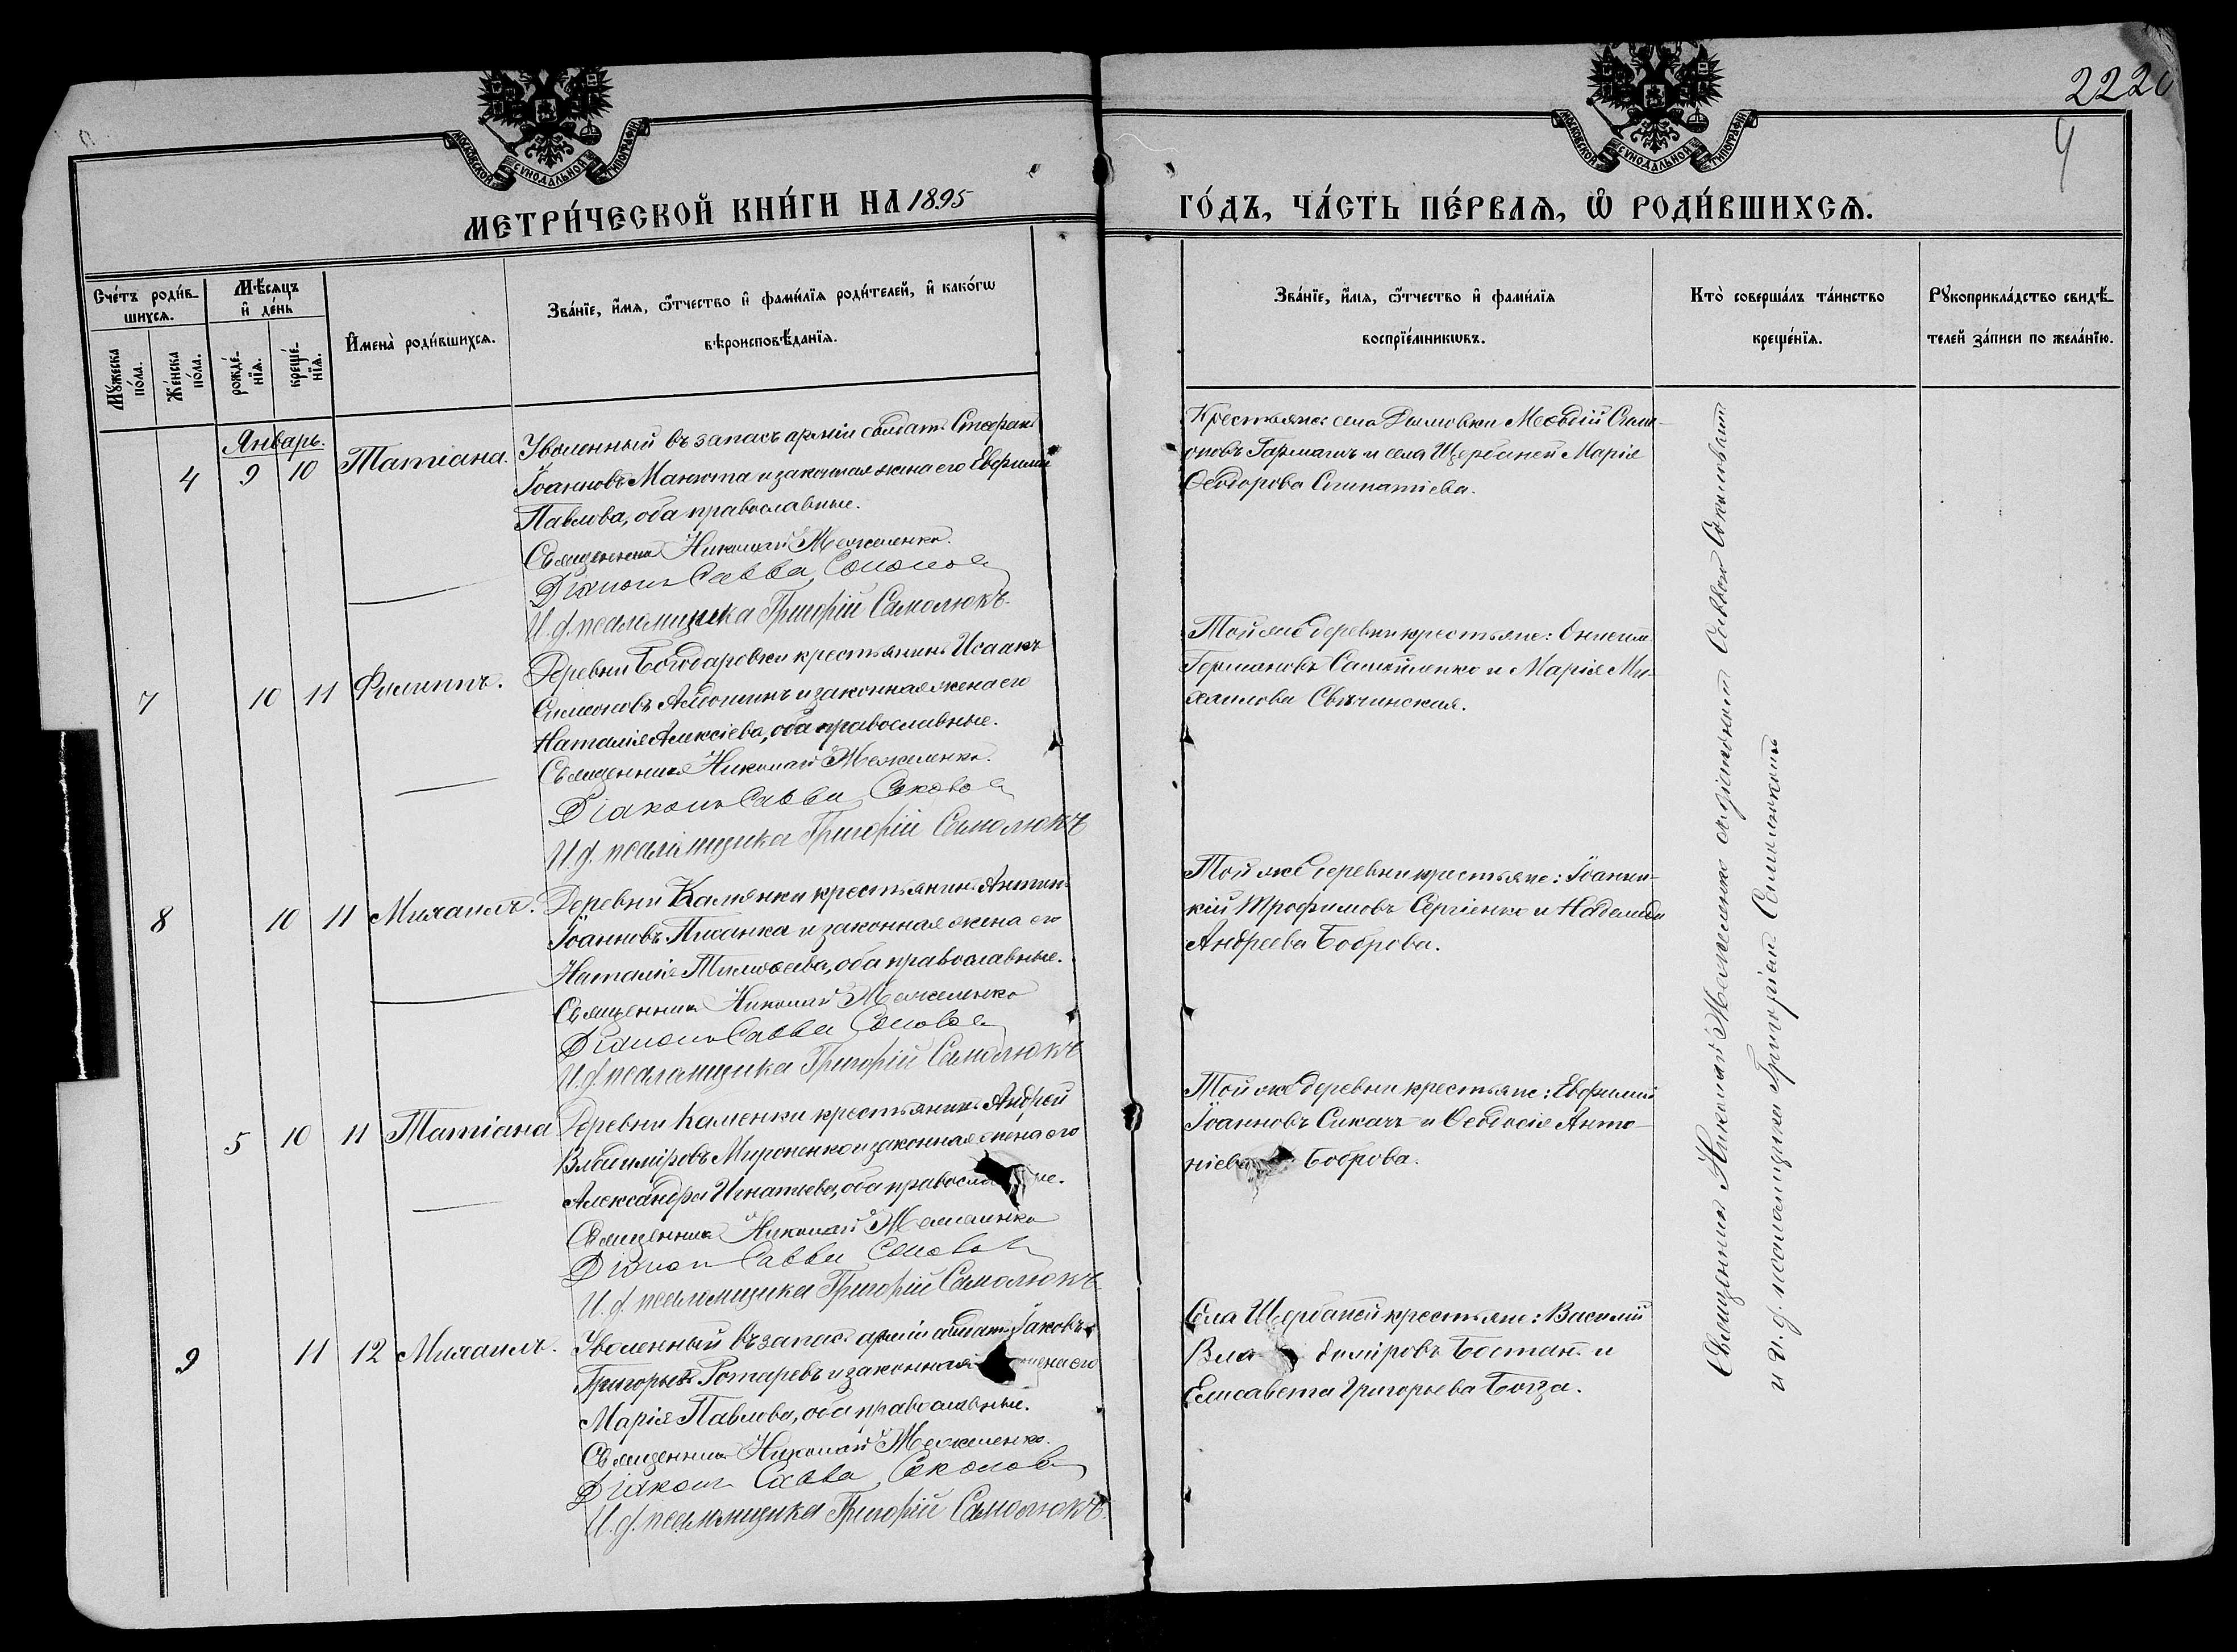 2220
4
МОСКОВСКОЙ СѴНОДАЛЬНОЙ ТИПОГРАФІИ
МОСКОВСКОЙ СѴНОДАЛЬНОЙ ТИПОГРАФІИ
МЕТРИ́ЧЕСКОЙ КНИ́ГИ НА 1895
ГО́ДЪ, ЧА́СТЬ ПЕ́РВАЯ, Ѽ РОДИ́ВШИХСѦ.
Сче́тъ роди́в-
шихсѧ.
Мꙋ́жеска по́ла.
Же́нска по́ла.
Мѣ́сѧцъ
и҆ де́нь
рожде́-
нїѧ.
креще́-
нїѧ.
И҆мена̀ роди́вшихсѧ.
Зва́нїе, и҆́мѧ, ѻ҆́тчество и҆ фами́лїѧ роди́телей, и҆ како́гѡ
вѣроисповѣ́данїѧ.
Зва́нїе, и҆́мѧ, ѻ҆́тчество и҆ фами́лїѧ
воспрїе́мникѡвъ.
Кто̀ соверша́лъ та́инство
креще́нїѧ.
Рꙋкоприкла́дство свидѣ́-
телей за́писи по жела́нїю.
Январь.
4 9 10 Татіана.
Уволенный въ запасъ арміи солдатъ Стефанъ
Іоанновъ Манюта и законная жена его Евфимія
Павлова, оба православные.
Священникъ Николай Межленко.
Діаконъ Савва Соколов
И. д. псаломщика Григорій Самолюкъ.
Крестьяне: села Дымовки Меѳодій Симе-
оновъ Гармашъ и села Щербаней Марія
Ѳеодорова
7 10 11 Филиппъ.
Деревни Богодаровки крестьянинъ Исаакъ
Симеоновъ и законная жена его
Наталія Алексіева, оба православные.
Священникъ Николай Межленко.
Діаконъ Савва Соколов
И. д. псаломщика Григорій Самолюкъ
Той же деревни крестьяне: Онисимъ
Германовъ Самойленко и Марія Ми-
хаилова Свѣчинская.
8 10 11 Михаилъ.
Деревни Камянки крестьянинъ Антинъ
Іоанновъ и законная жена его
Наталія Тимоѳеева, оба православные.
Священникъ Николай Межленко
Діаконъ Савва Соколов
И. д. псаломщика Григорій Самолюкъ
Той же деревни крестьяне: Іоанни-
кій Трофимовъ Сергіенко и Надежда
Андреева Боброва.
5 10 11 Татіана
Деревни Каменки крестьянинъ Андрей
Владиміровъ Мироненко и законная жена его
Александра Игнатьева, оба православные.
Священникъ Николай Межленко
Діаконъ Савва Соколов
И. д. псаломщика Григорій Самолюкъ.
Той же деревни крестьяне: Евфимій
Іоанновъ Сикачъ и Ѳеодосія Анто-
ніева Боброва.
9 11 12 Михаилъ.
Уволенный въ запасъ арміи солдатъ Іаковъ
Григорьевъ Ротаревъ и законная жена его
Марія Павлова, оба православные.
Священникъ Николай Межленко.
Діаконъ Савва Соколов
И. д. псаломщика Григорій Самолюкъ.
Села Щербаней крестьяне: Василій
Владиміровъ Бостанъ и
Елисавета Григорьева
Священникъ Николай Межленко съ діакономъ Саввою Соколовымъ
и и. д. псаломщика Григоріемъ Самолюкомъ